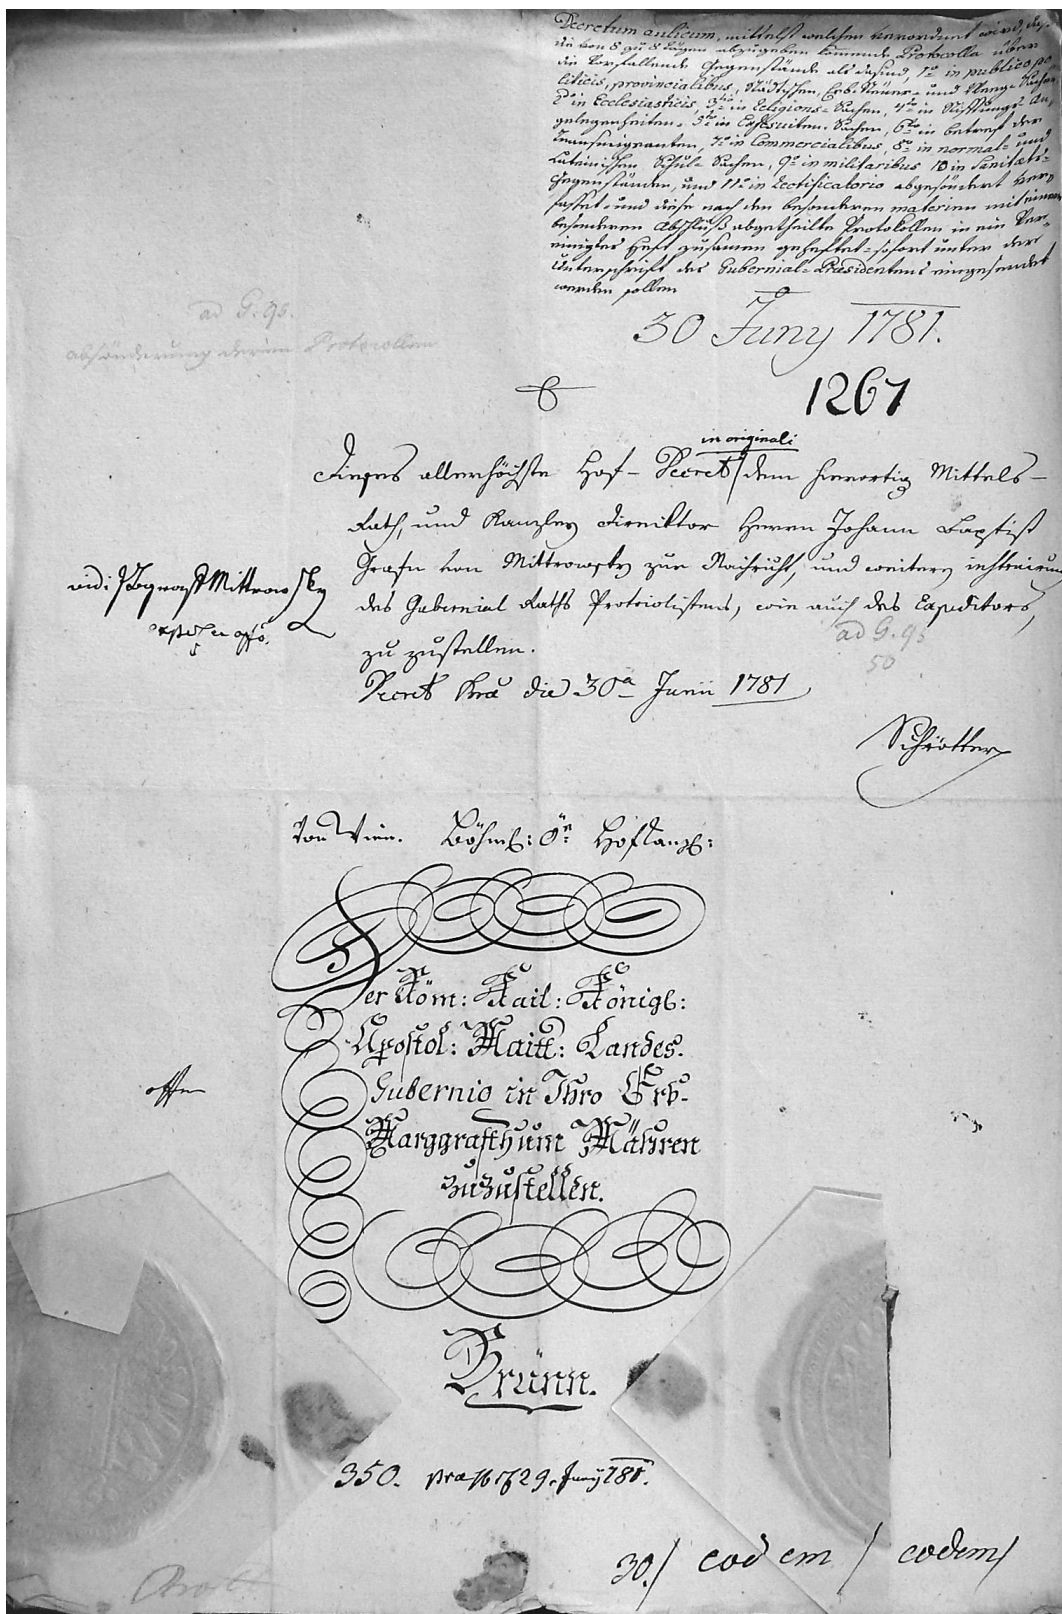 Decretum aulicum, mittelst welchen verordnet wird, daß
die von 8 zu 8 Tägen abzugeben kommende Protocolla über
die vorfallende Gegenstände als da sind, 1mo in publico po
liticis, provincialibus, Städtischen, und Sachen
2do in Ecclesiasticis, 3tio in Religions-Sachen, 4to in Stiftungs An
gelegenheiten, 5to in Exjesuiten Sachen, 6to in betref der
Transmigranten, 7mo in Commercialibus, 8vo in normal- und
Lateinischen Schul-Sachen, 9no in militaribus 10 in Sanitäts-
Gegenständen, und 11mo in Rectificatorio abgesöndert ver
fasset, und diese nach den besonderen materien mit einem
besonderen Abschluß abgetheilte Protokollen in ein ver-
einigtes Heft zusamen geheftet, sofort unter der
Unterschrift des Gubernial-Præsidentens eingesendet
werden sollen
30 Juny 1781.
1267
ad G. 95.
absönderung deren Protocollen
in originali
Dieses allerhöchste Hof-Decret / dem hierortig Mittels-
Rath, und Kanzley Direktor Herrn Johann Baptist
Grafn von Mittrowsky zur Nachricht, und weitern instruirung
des Gubernial Raths Protocolistens, wie auch des Expeditors,
zu zustellen.
Decret die 30a Junii 1781
vidi Mittrowsky
ad G. 95
50
Schrötter
Von Wien. Böhm: Ö: Hofkanz:
Der Röm: Kail: Königl:
Apostol: Maitt: Landes-
Gubernio in Ihro Erb-
Marggrafthum Mähren
zuzustellen.
offen
Brünn.
350. præs 29. Juny 781.
30./ eodem / eodem/